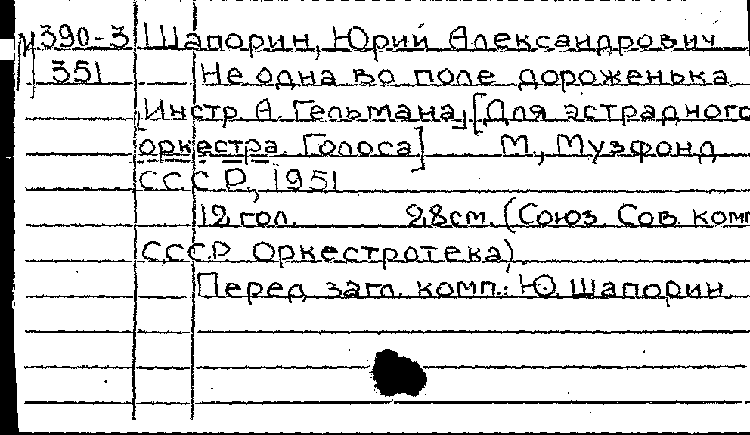 М390-3 Шапорин, Юрий Александрович
351 Не одна во поле дороженька
[Инстр. А. Гельмана] [Для эстрадного
оркестра. Голоса] М., Музфонд
СССР, 1951
12 гол. 28см. (Союз Сов. комп
СССР Оркестротека)
Перед загл. комп.: Ю. Шапорин